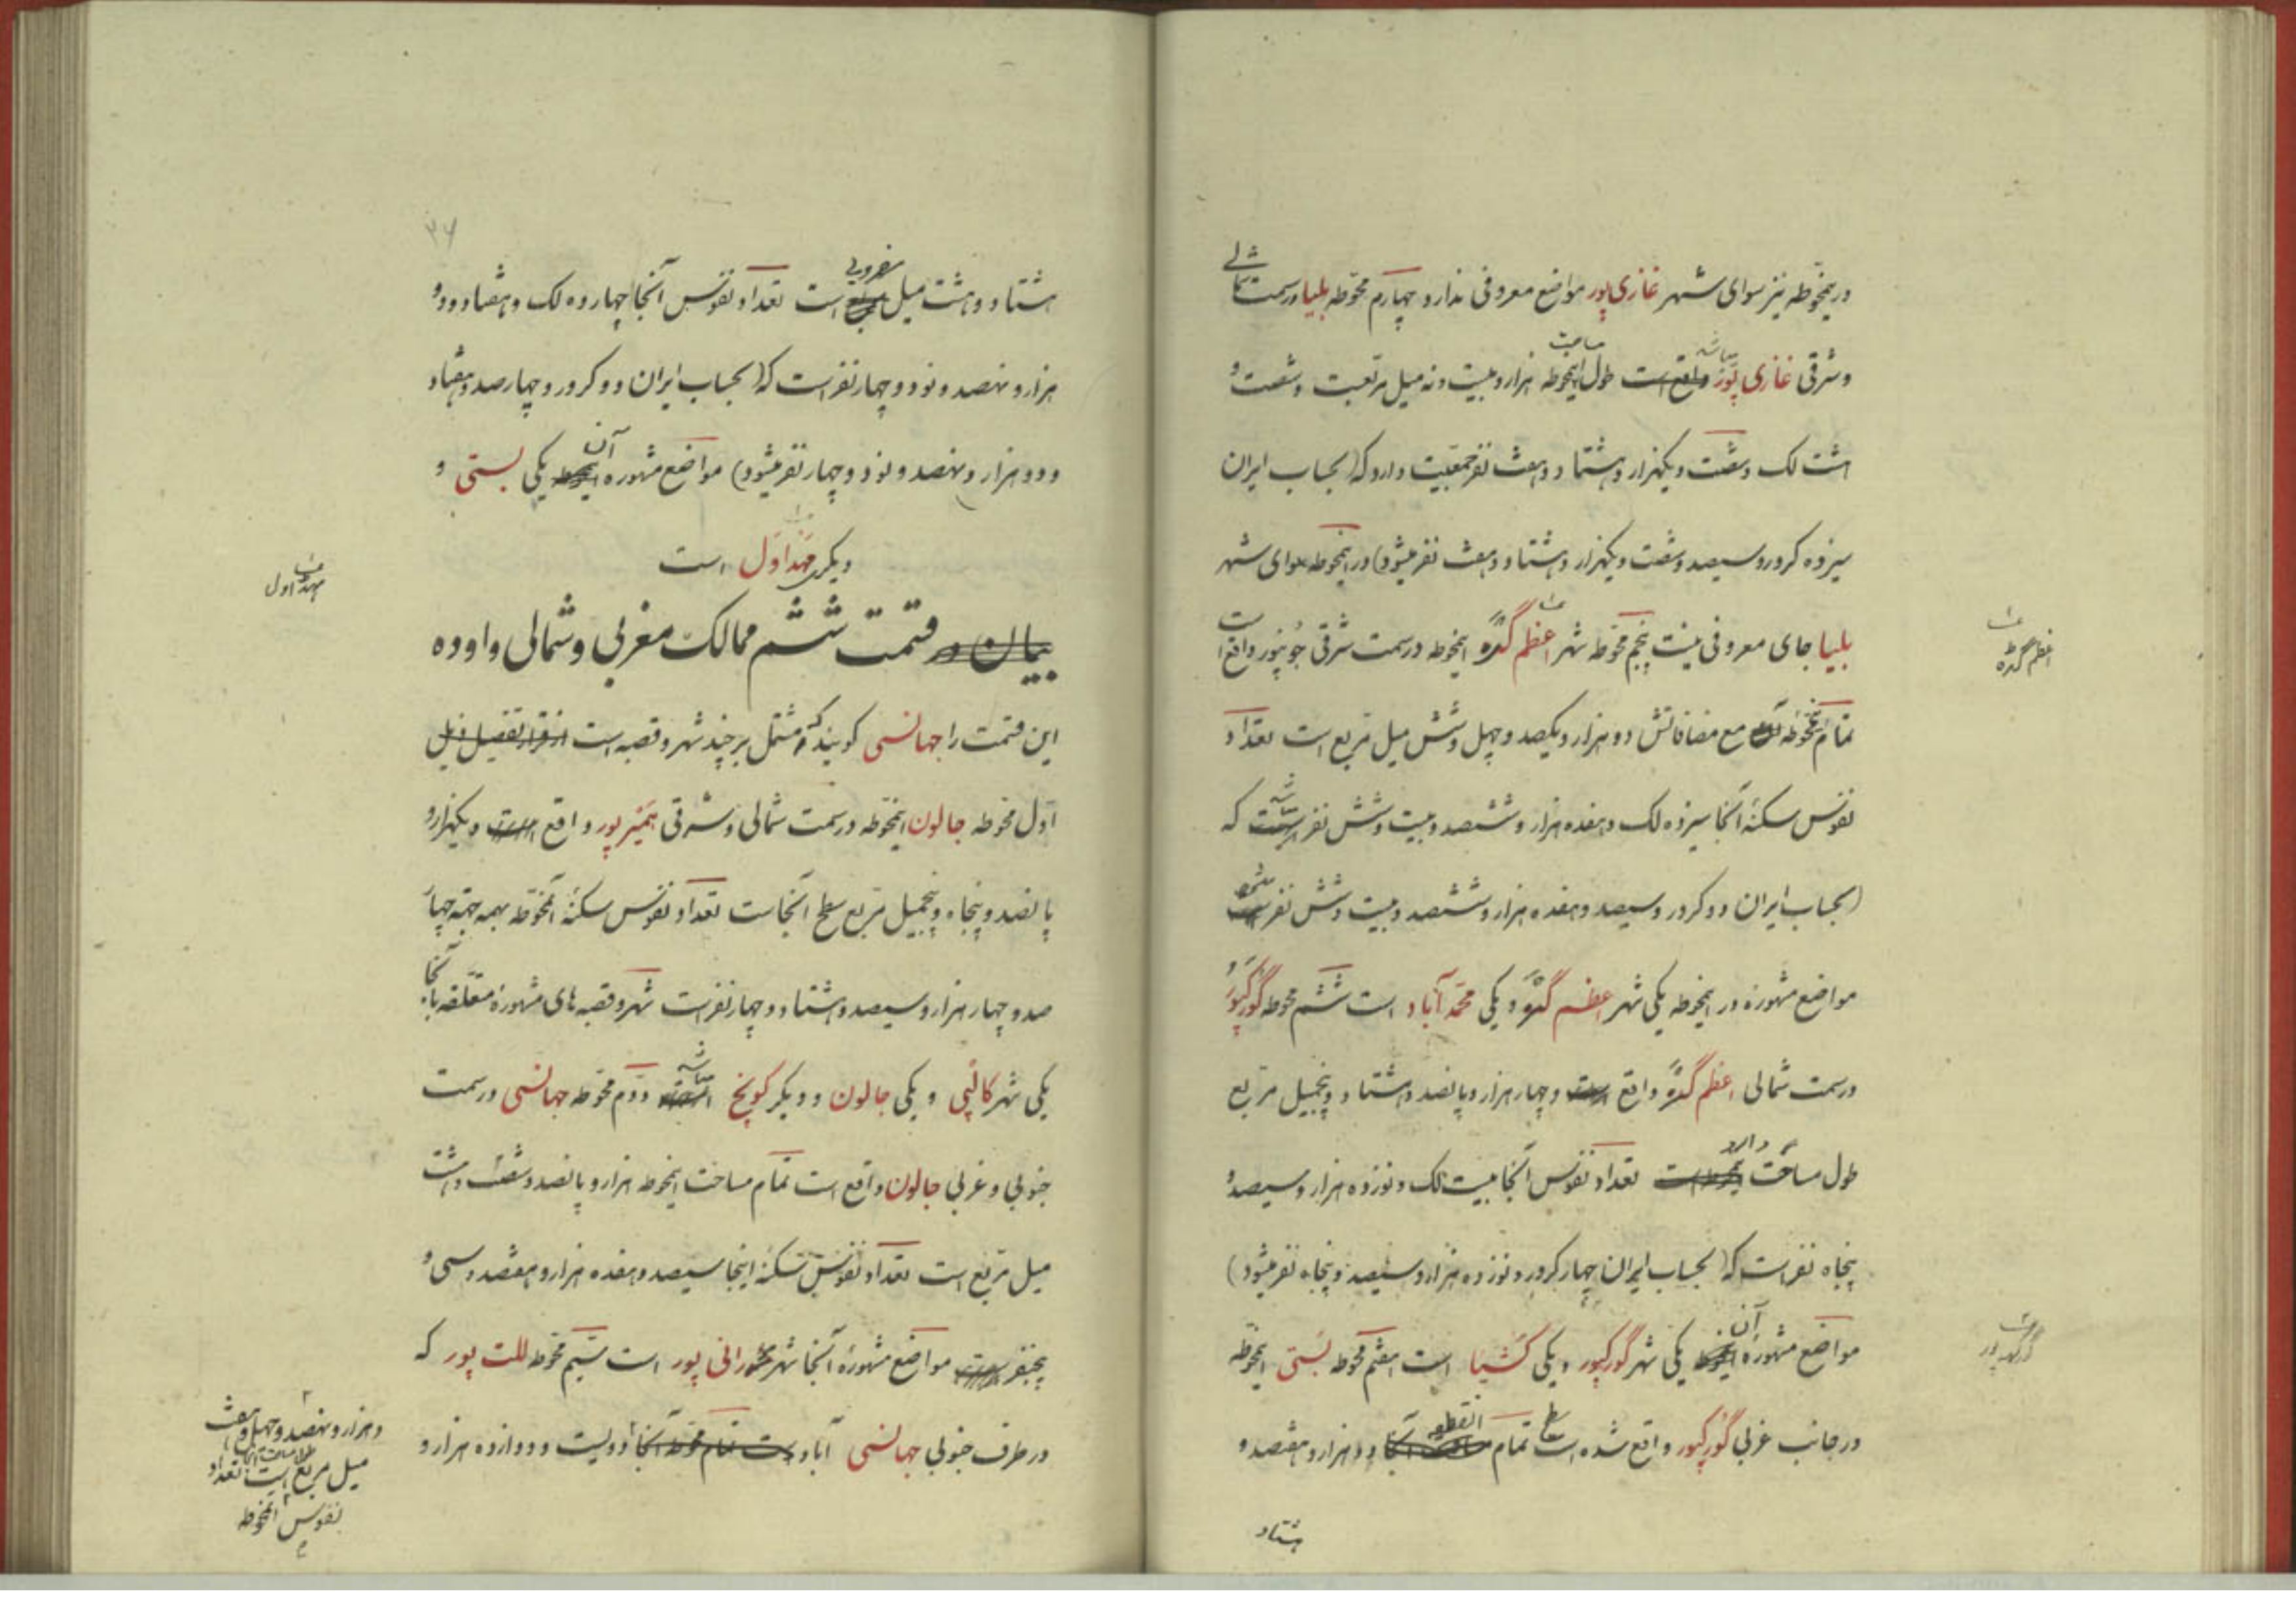 درینمحوّطه نیز سوای شهر غازی پور مواضع معروفی ندارد چهارم محوّطه بلیا در سمت شمالی
و شرقی غازی پور واقع است طول اینمحوطه هزار و بیست و نه میل مربعست و شصت و
هشت لک و شصت و یکهزار و هشتاد و هفت نفر جمعیت دارد که (بحساب ایران
سیزده کرور و سیصد و شصت و یکهزار و هشتاد و هفت نفر میشود) در اینمحوطه سوای شهر
بلیا جای معروفی نیست پنجم محوّطه شهر اعظم گده اینمحوطه در سمت شرقی جونپور واقع است
تمام اینمحوطه مع مضافاتش دو هزار و یکصد و چهل و شش میل مربع است تعداد
نفوس سکنهٔ آنجا سیزده لک و هفده هزار و ششصد و بیست و شش نفر است که
(بحساب ایران دو کرور و سیصد و هفده هزار و ششصد و بیست و شش نفر میشود
مواضع مشهوره در اینمحوطه یکی شهر اعظم گده و یکی محمّد آباد است ششم محوطه گورکپور
در سمت شمالی اعظم گده واقع است و چهار هزار و پانصد و هشتاد و پنجمیل مربع
طول مساحت دارد تعداد نفوس آنجا بیست لک و نوزده هزار و سیصد و
پنجاه نفر است که (بحساب ایران چهار کرور و نوزده هزار و سیصد و پنجاه نفر میشود)
مواضع مشهورهٔ آن یکی شهر گورکپور و یکی کشیا است هفتم محوطه بستی اینمحوّطه
در جانب غربی گورکپور واقع شده است سطح تمام انقطعه دو هزار و هفتصد و
هشتاد
اعظم گده
گورکهپور
۲۶
هشتاد و هشت میل مربع است تعداد نفوس آنجا چهارده لک و هفتاد و دو
هزار و نهصد و نود و چهار نفر است که (بحساب ایران دو کرور و چهارصد و هفتاد
و دو هزار و نهصد و نود و چهار نفر میشود) مواضع مشهوره آن یکی بستی و
دیگری مهنداول است
مهنداول
بیان در قسمت ششم ممالک مغربی و شمالی و اوده
این قسمت را جهانسی گویند که مشتمل بر چند شهر و قصبه است از قرار تفصیل ذیل
اوّل محوّطه جالون اینمحوّطه در سمت شمالی و شرقی همیرپور واقع است و یکهزار و
پانصد و پنجاه و پنجمیل مربع سطح آنجاست تعداد نفوس سکنهٔ آنمحوّطه همه جهة چهار
صد و چهار هزار و سیصد و هشتاد و چهار نفر است شهر و قصبه های مشهوره متعلّقه بآنجا
یکی شهر کالپی و یکی جالون و دیگر کونچ است دوّم محوّطه جهانسی در سمت
جنوبی و غربی جالون واقع است تمام مساحت اینمحوطه هزار و پانصد و شصت و هشت
میل مربع است تعداد نفوس سکنهٔ اینجا سیصد و هفده هزار و هفتصد و سی و
پنجنفر است مواضع مشهورهٔ آنجا شهر رانی پور است سیّم محوّطه للت پور که
در طرف جنوبی جهانسی آباد است تمام محوطه آنجا دویست و دوازده هزار و
و هزار و نهصد و چهل و هفت
میل مربع است تعداد
نفوس آنمحوطه